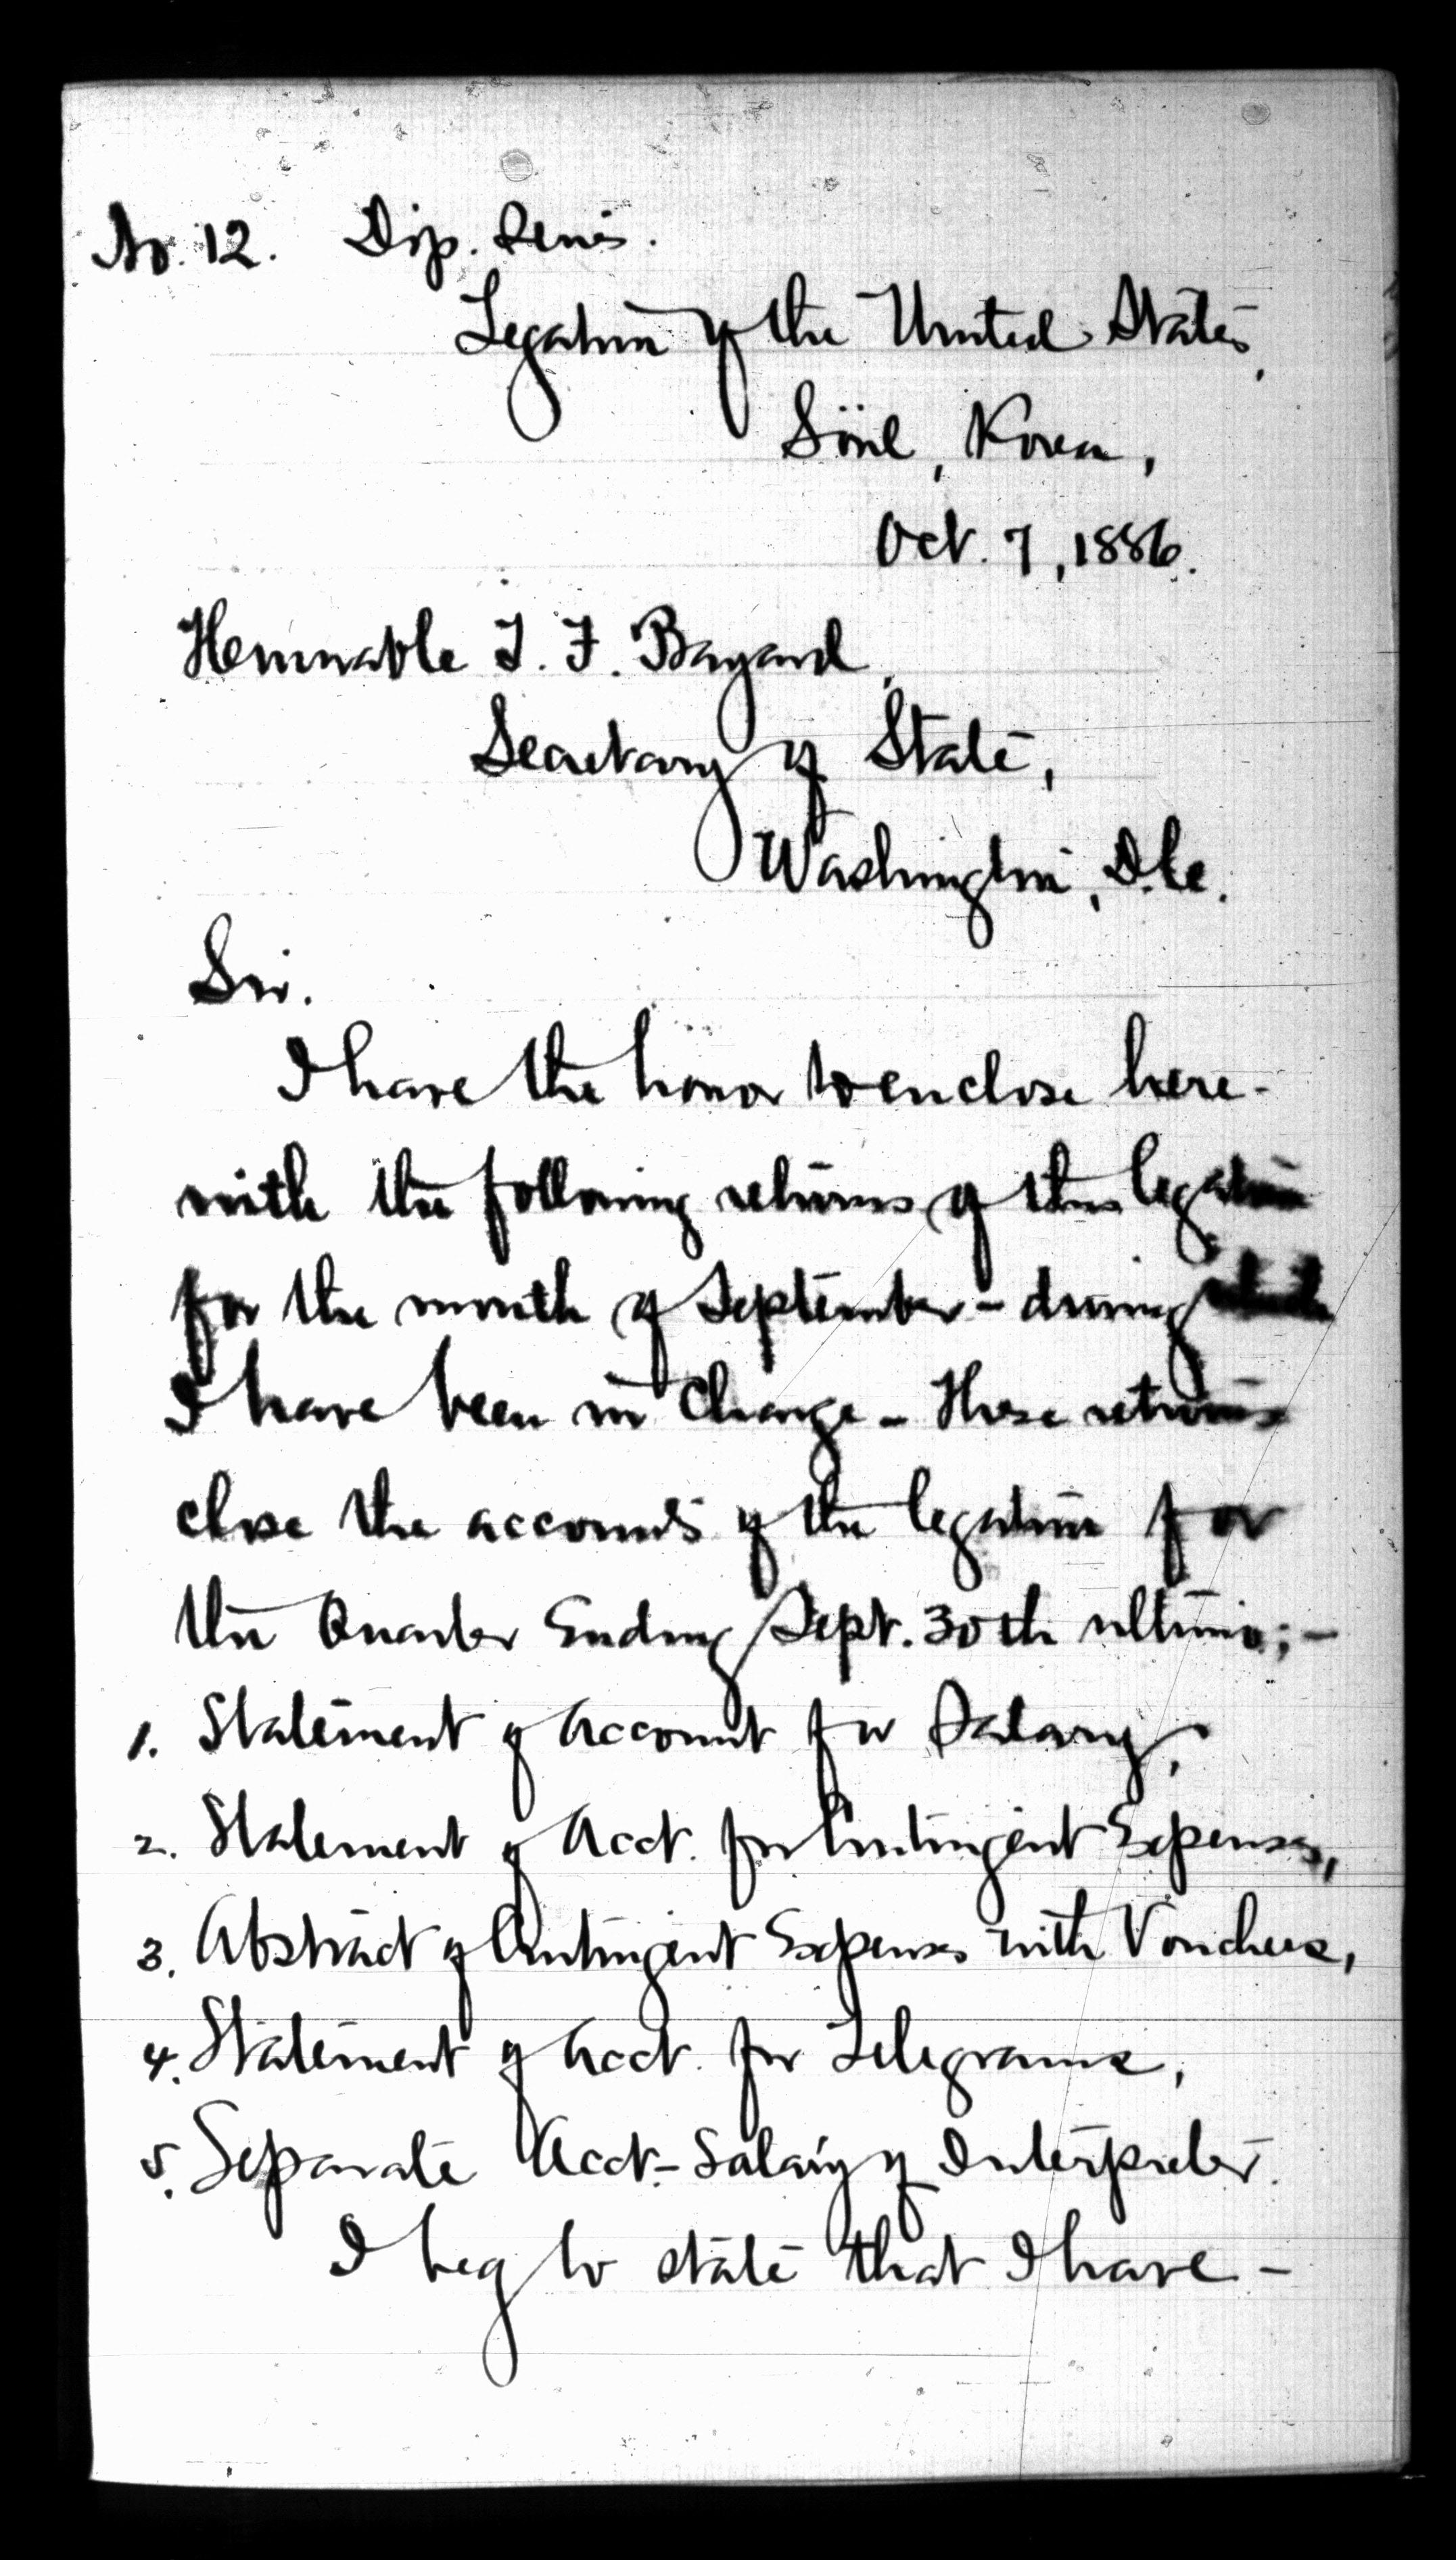 No. 12. Dip. Series.
Legation of the United States,
Söul, Korea,
Oct. 7, 1886.
Honorable T. F. Bayard,
Secretary of State,
Washington, D.C.
Sir.
I have the honor to enclose here-
with the following returns of this legation
for the month of September - during which
I have been in Charge - These returns
close the accounts of the legation for
the Quarter Ending Sept. 30th ultimo; -
1. Statement of Account for Salary,
2. Statement of Acct. for Contingent Expenses,
3. Abstract of Contingent Expenses with Vouchers,
4. Statement of Acct. for Telegrams,
5. Separate Acct - Salary of Interpreter.
I beg to state that I have -